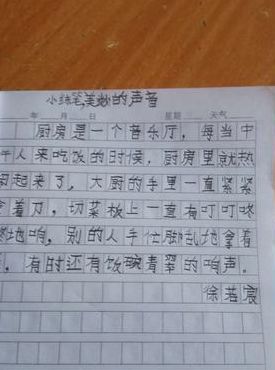 小练笔,美妙的声音
年 月 日 星期 天气
厨房是一个音乐厅,每当中
午人来吃饭的时候,厨房里就热
闹起来了,大厨的手里一直紧紧
拿着刀,切菜板上一直有叮叮咚
咚地响,别的人手忙脚乱地拿着
,有时还有饭碗青翠的响声.
徐若宸